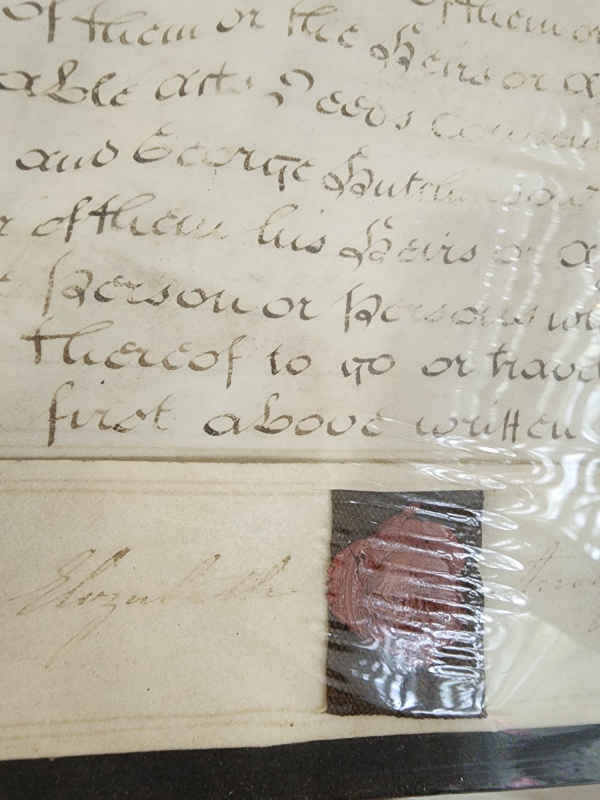 of them or the Heirs or
able acts Deeds
and George Hutchinson
of them his Heirs or
Person or Persons
thereof to go or
first above written
Elizabeth